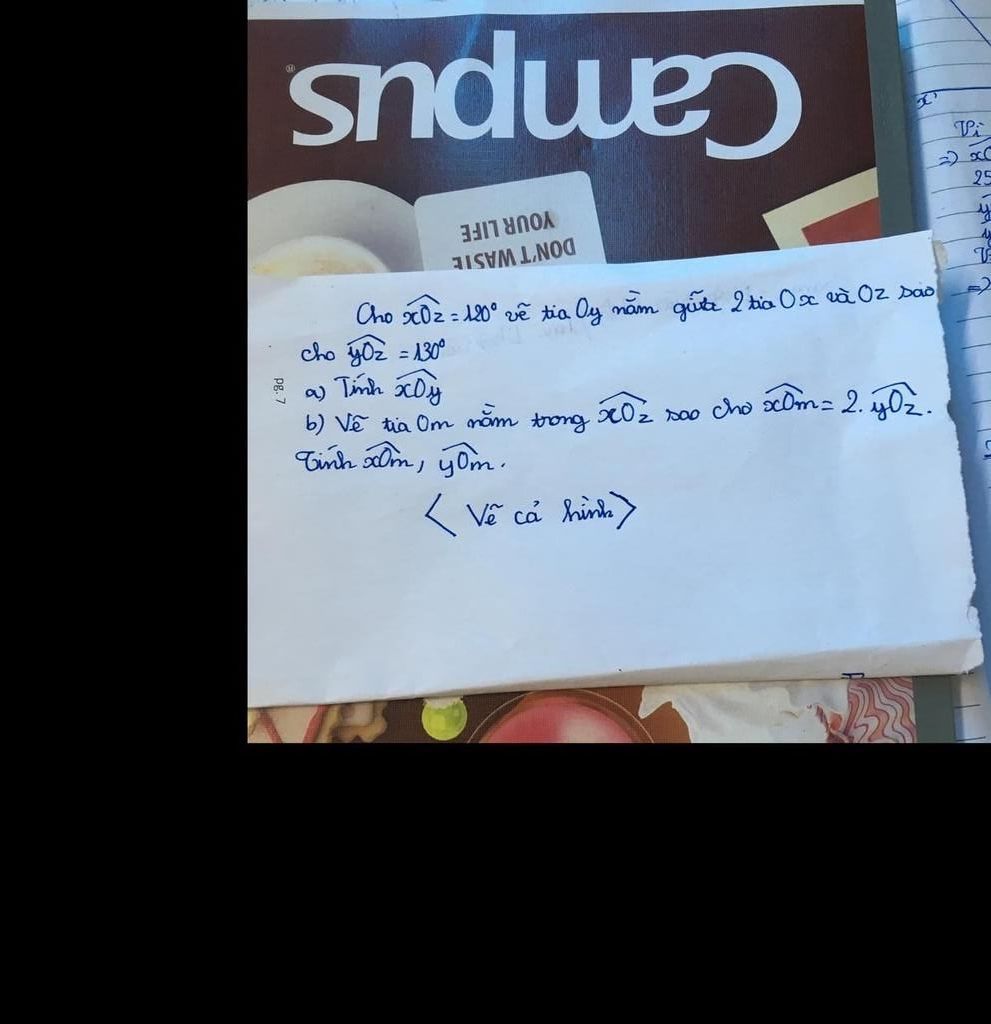 Campus
®
DON'T WASTE
YOUR LIFE
x'
Vì
=> xO
25
y
y
V
=>
Cho xOz = 120° vẽ tia Oy nằm giữa 2 tia Ox và Oz sao
cho yOz = 130°
pg. 7
a) Tính xOy
b) Vẽ tia Om nằm trong xOz sao cho xOm = 2. yOz.
Tính xOm, yOm.
< Vẽ cả hình >